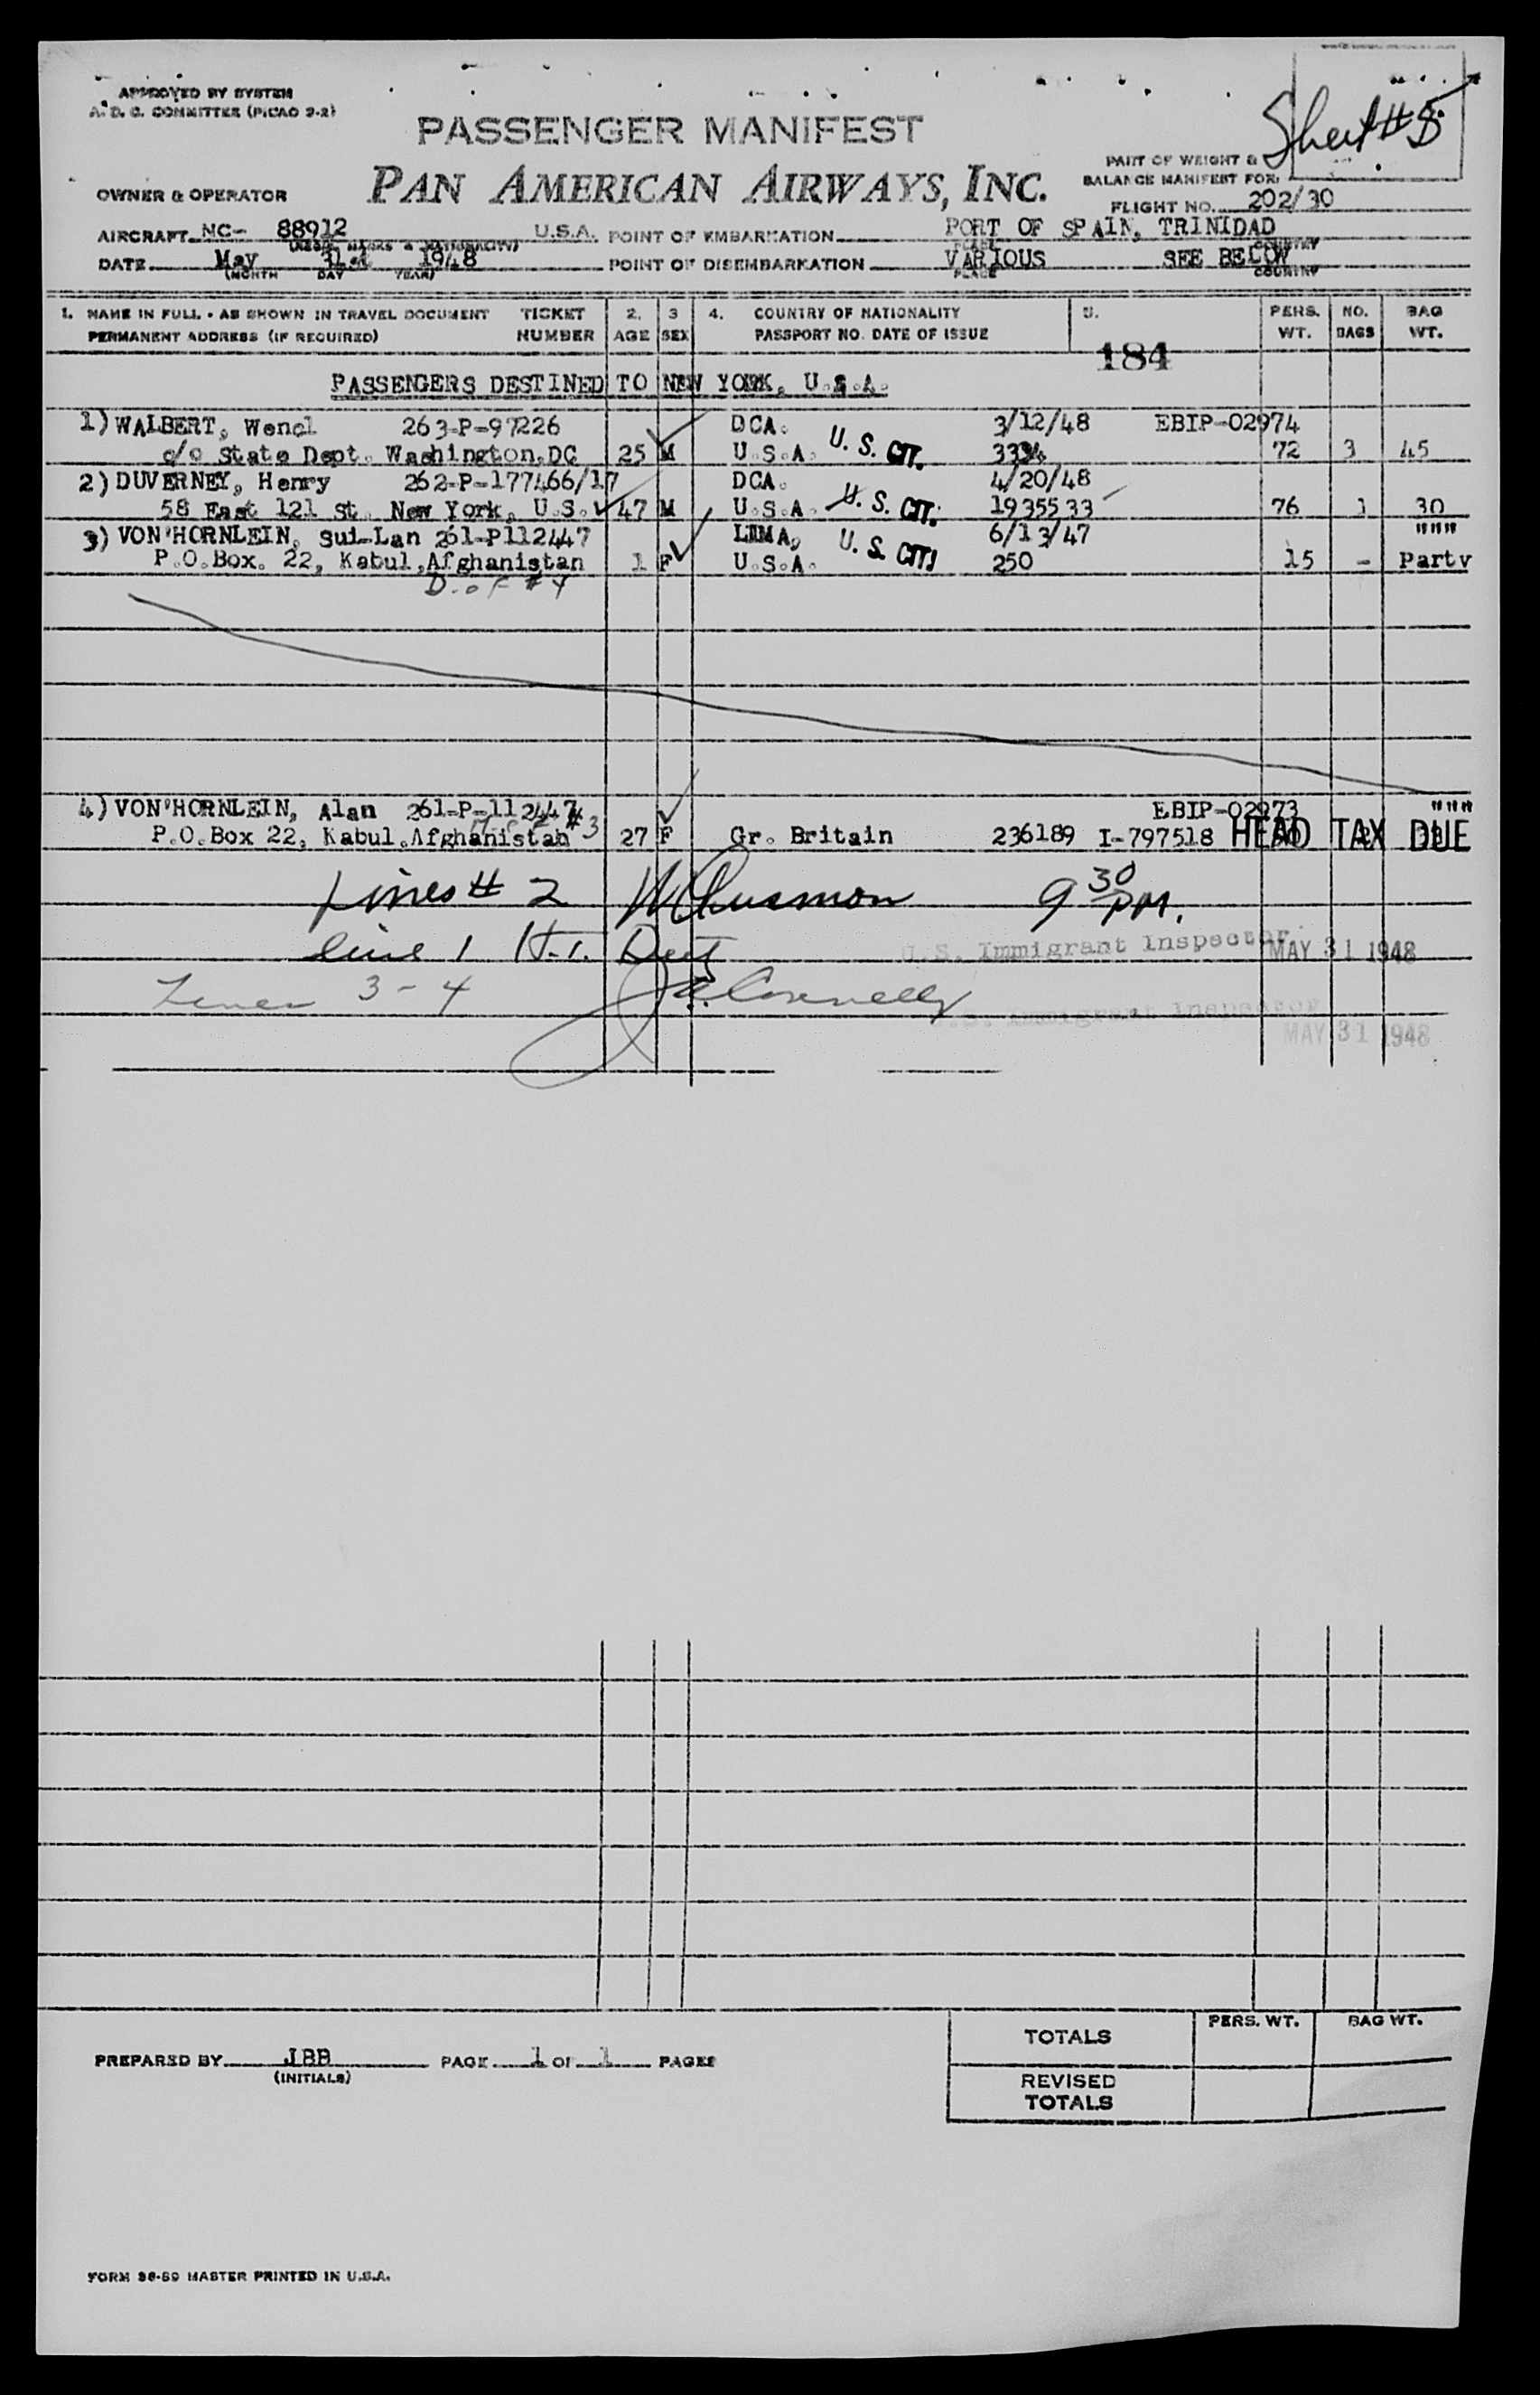 APPROVED BY SYSTEM
A. D. C. COMMITTEE (PICAO 2-2)
Sheet # 5
PASSENGER MANIFEST
PAN AMERICAN AIRWAYS, INC.
PART OF WEIGHT &
BALANCE MANIFEST FOR:
FLIGHT NO. 202/30
OWNER & OPERATOR
AIRCRAFT NC- 88912 U.S.A. POINT OF EMBARKATION PORT OF SPAIN, TRINIDAD
PLACE COUNTRY
DATE May 31st 1948 POINT OF DISEMBARKATION VARIOUS SEE BELOW
(MONTH DAY YEAR) PLACE COUNTRY
1. NAME IN FULL - AS SHOWN IN TRAVEL DOCUMENT TICKET 2. 3 4. COUNTRY OF NATIONALITY 5. PERS. NO. BAG
PERMANENT ADDRESS (IF REQUIRED) NUMBER AGE SEX PASSPORT NO. DATE OF ISSUE WT. BAGS WT.
184
PASSENGERS DESTINED TO NEW YORK, U.S.A.
1) WALBERT, Wencl 263-P-97226 DCA. 3/12/48 EBIP-02974
c/o State Dept. Washington,DC 25 M U.S.A. U. S. CIT. 3334 72 3 45
2) DUVERNEY, Henry 262-P-177466/17 DCA. 4/20/48
58 East 121 St. New York, U.S. 47 M U.S.A. U. S. CIT. 1935533 76 1 30
3) VON'HORNLEIN, Sui-Lan 261-P112447 LIMA, 6/13/47 """"
P.O.Box. 22, Kabul,Afghanistan 1 F U.S.A. U. S. CIT. 250 15 - Party
D. of #4
4) VON'HORNLEIN, Alan 261-P-112447 EBIP-02973 """"
P.O.Box 22, Kabul,Afghanistan #3 27 F Gr. Britain 236189 I-797518 HEAD TAX DUE
Lines # 2 9 30 PM.
line 1 H.T. Due U.S. Immigrant Inspector MAY 31 1948
Lines 3-4 Connelly U.S. Immigrant Inspector
MAY 31 1948
TOTALS PERS. WT. BAG WT.
PREPARED BY JBB PAGE 1 OF 1 PAGES
(INITIALS)
REVISED
TOTALS
FORM 36-59 MASTER PRINTED IN U.S.A.